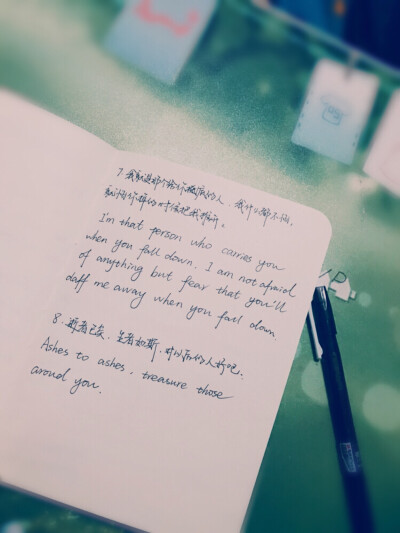 7. 我就是那个给你垫底的人，我什么都不怕，
就怕你掉的时候把我推开。
I'm that person who carries you
when you fall down, I am not afraid
of anything but fear that you'll
daff me away when you fall down
8. 逝者已矣，生者如斯，人好吧。
Ashes to ashes, treasure those
aroud you.